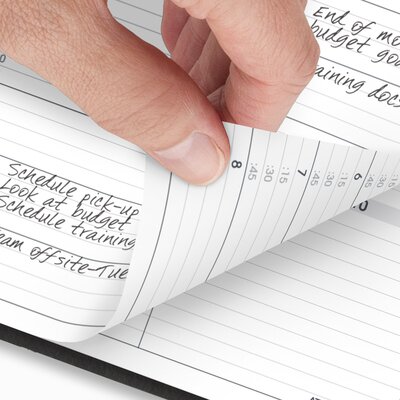 End of mo
budget goa
aining docs
8
:45
:30
:15
7
:45
:30
:15
6
:45
:30
:15
Schedule pick-up
Look at budget
Schedule training
eam offsite-Tue